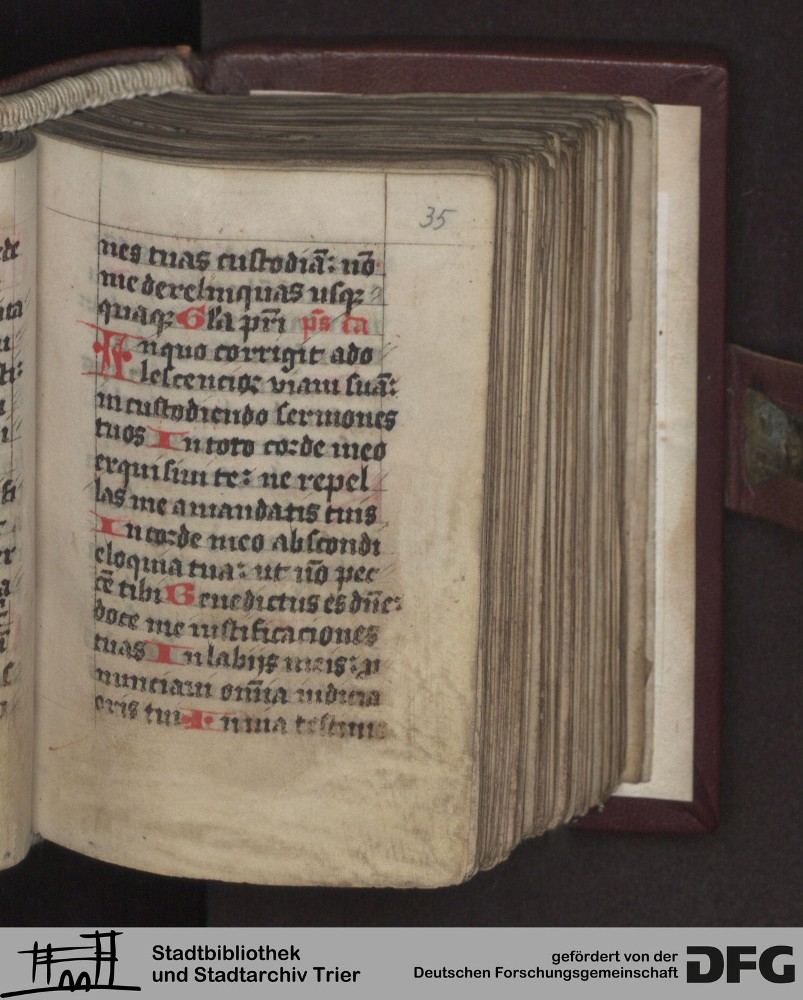 35
nes tuas custodiā: nō
me derelinquas usqꝫ
quaqꝫ Gla pr̄i ps̄ ca
In quo corrigit ado
lescencior viam suā:
in custodiendo sermones
tuos In toto corde meo
exquisiui te: ne repel
las me a mandatis tuis
In corde meo abscondi
eloquia tua: ut nō pec
cē tibi Benedictus es dn̄e:
doce me iustificaciones
tuas In labijs meis:
nunciaui om̄ia iudicia
oris tui In uia
Stadtbibliothek
und Stadtarchiv Trier
gefördert von der
Deutschen Forschungsgemeinschaft
DFG